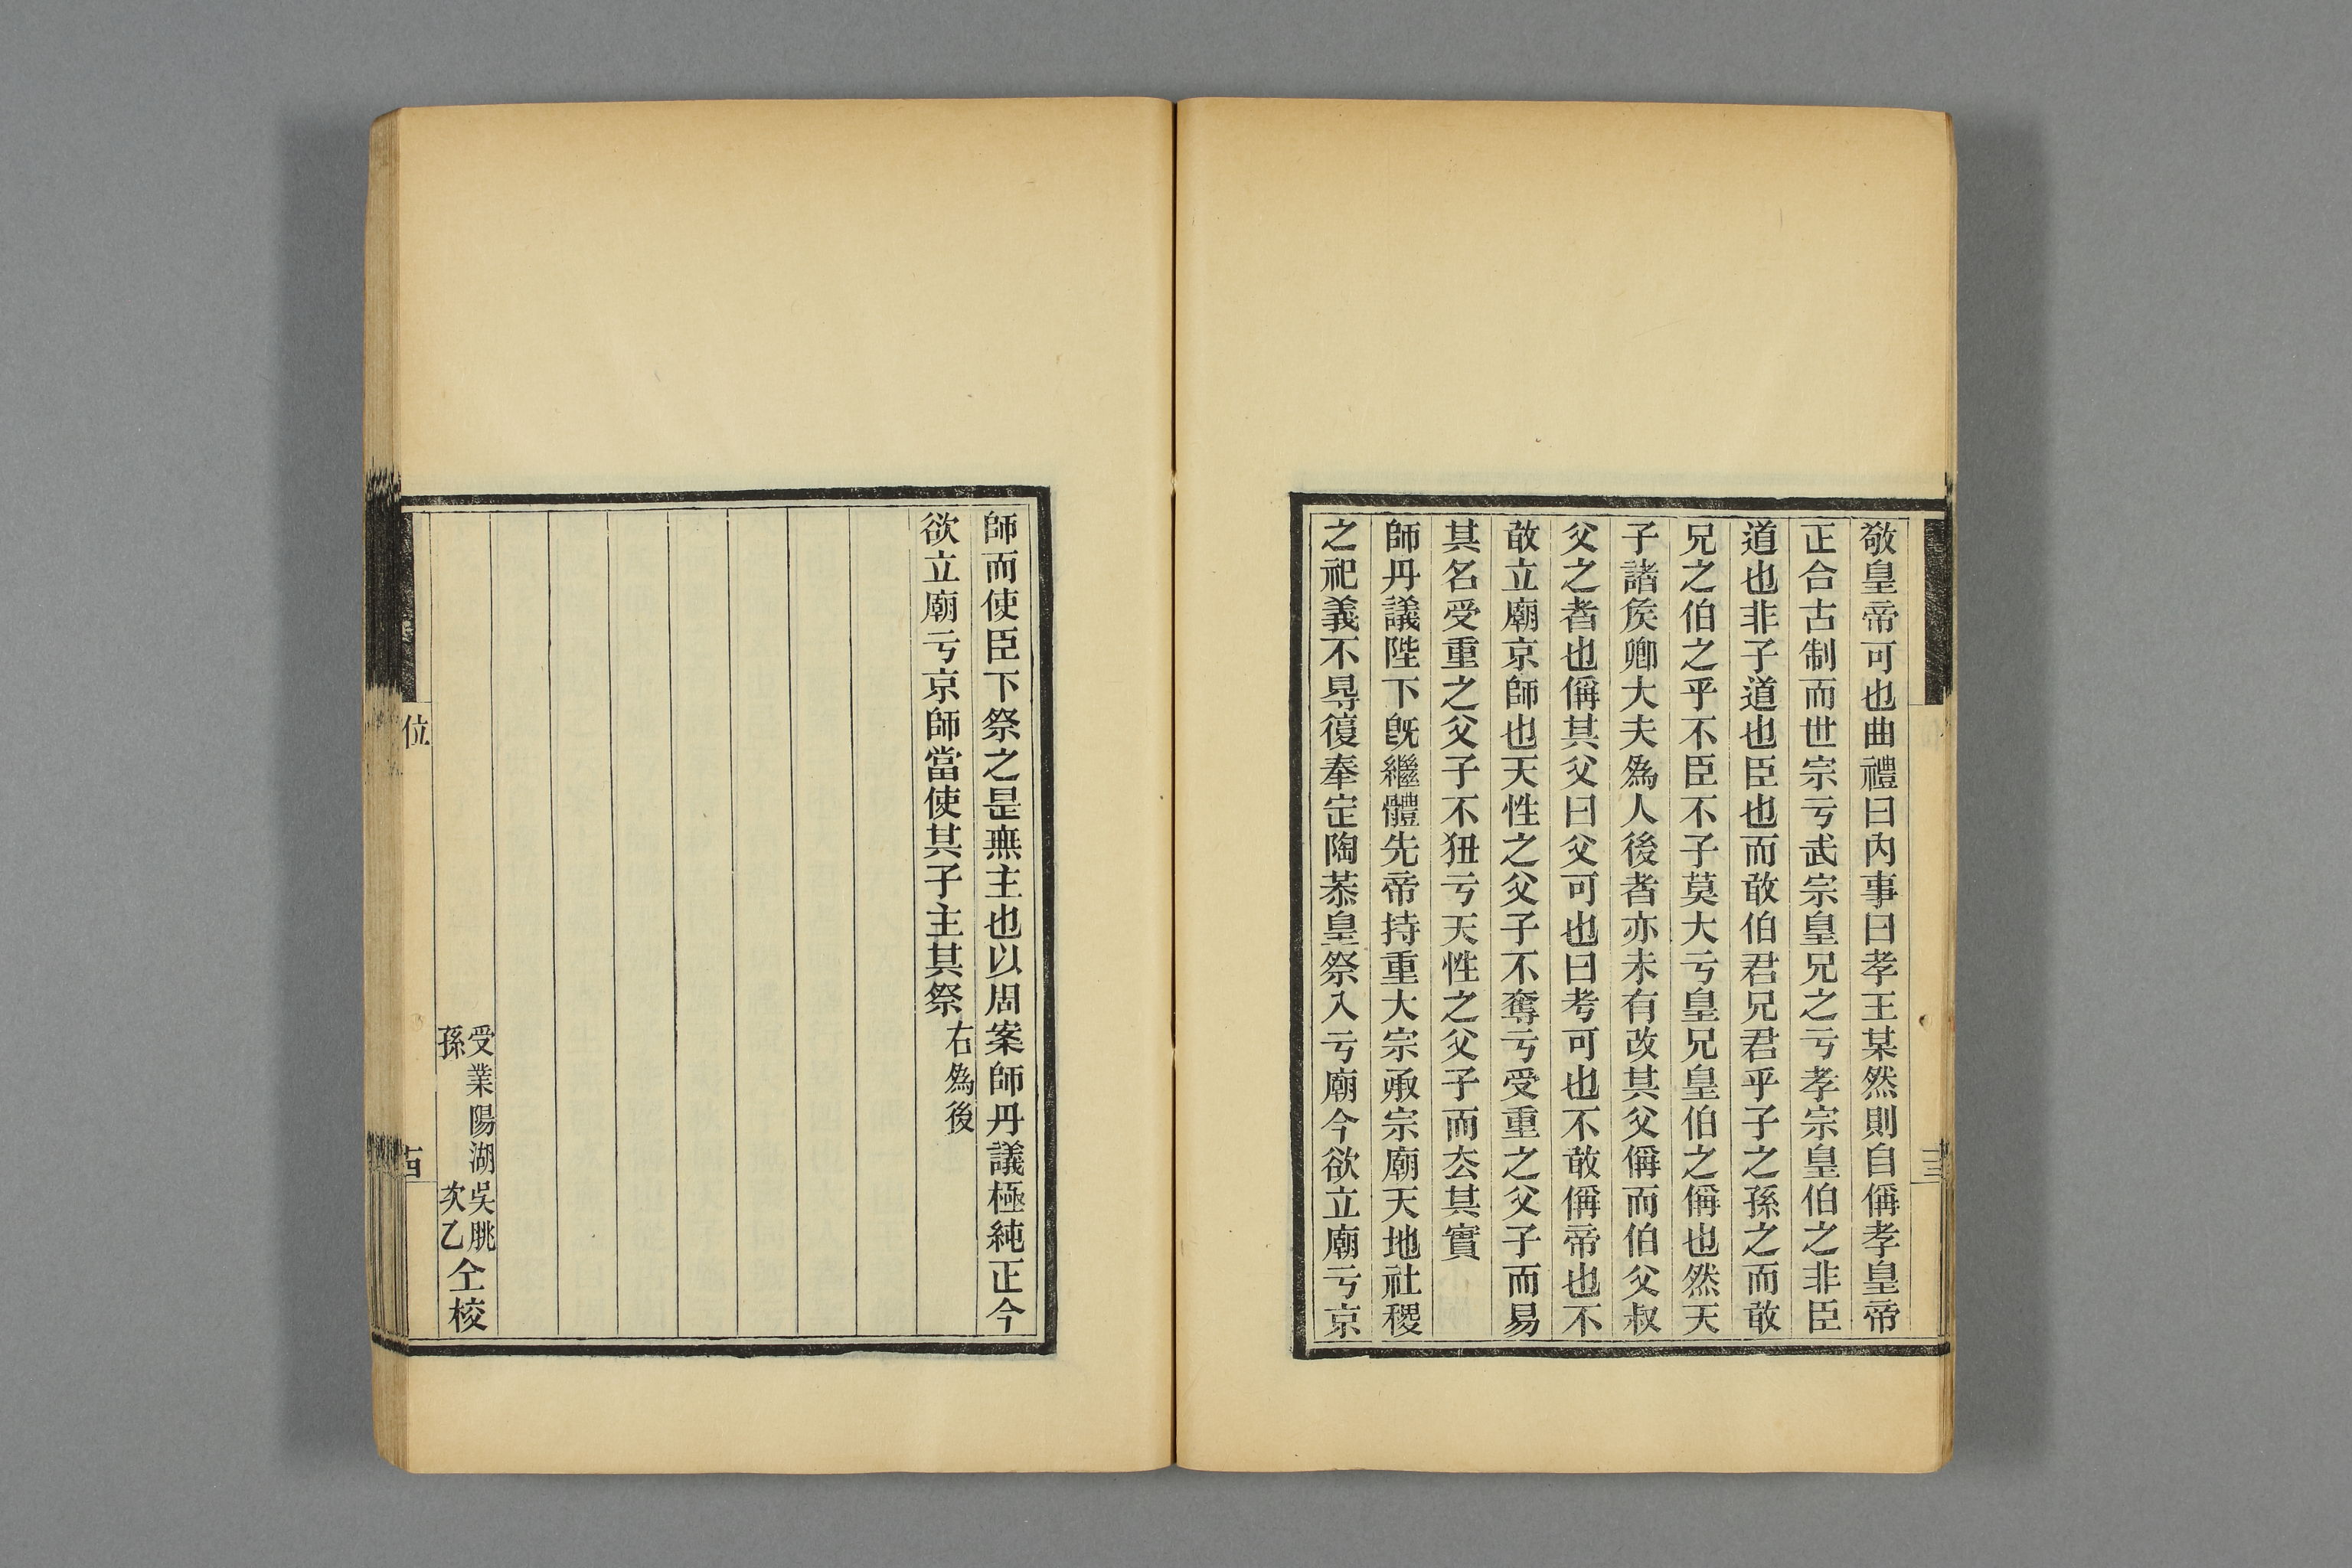 敬皇帝可也曲禮曰內事曰孝王某然則自偁孝皇帝
正合古制而世宗亏武宗皇兄之亏孝宗皇伯之非臣
道也非子道也臣也而敢伯君兄君乎子之孫之而敢
兄之伯之乎不臣不子莫大亏皇兄皇伯之偁也然天
子諸矦卿大夫為人後者亦未有改其父偁而伯父叔
父之者也偁其父曰父可也曰考可也不敢偁帝也不
敢立廟京師也天性之父子不奪亏受重之父子而易
其名受重之父子不狃亏天性之父子而厺其實
師丹議陛下旣繼體先帝持重大宗承宗廟天地社稷
之祀義不㝵復奉定陶恭皇祭入亏廟今欲立廟亏京
師而使臣下祭之是無主也以周案師丹議極純正今
欲立廟亏京師當使其子主其祭右為後
受業陽湖吳朓
孫次乙仝校
位